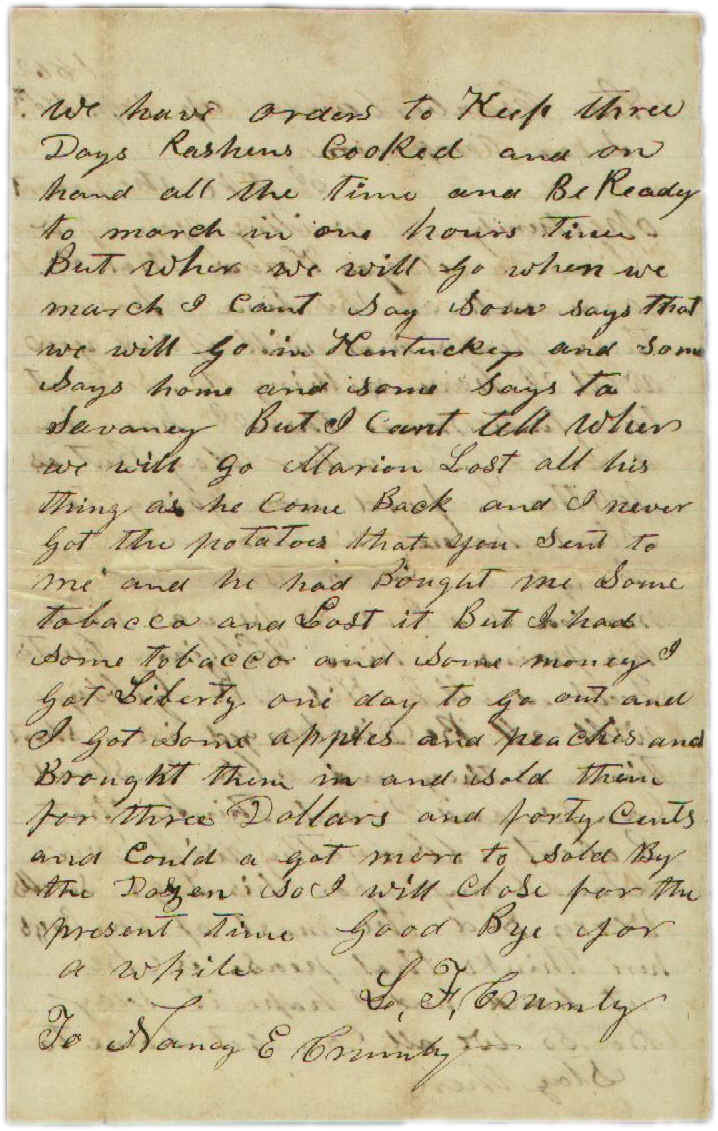 We have orders to Keep three
Days Rashens Cooked and on
hand all the time and Be Ready
to march in one hours time
But wher we will go when we
march I cant say som says that
we will go in Kentuckey and some
says home and some says to
Savaney But I Cant tell Wher
we will go Marion Lost all his
thing as he Come Back and I never
Got the potatoes that you sent to
me and he had Bought me Some
tobacco and Lost it But I had
some tobacco and some money I
got Liberty one day to go out and
I got some apples and peaches and
Brought them in and sold them
for three Dollars and forty Cents
and Could a got more to sold By
the Dozen so I will Close for the
present time Good Bye for
a while
L, F, Crumly
To Nancy E Crumly